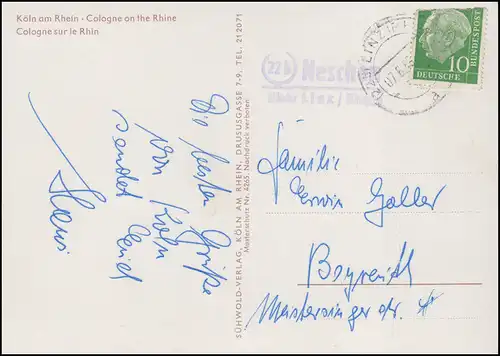 Köln am Rhein · Cologne on the Rhine
Cologne sur le Rhin
Die besten Grüße
von Köln
sendet Euch
Hans
SÜHWOLD-VERLAG, KÖLN AM RHEIN, DRUSUSGASSE 7-9, TEL. 212071
Masterschutz Nr. 4265. Nachdruck verboten
(22b) Nesch
über Linz/Rhein
LINZ
10
DEUTSCHE
BUNDESPOST
Familie
Erwin Galler
Bayreuth
Meistersinger str.